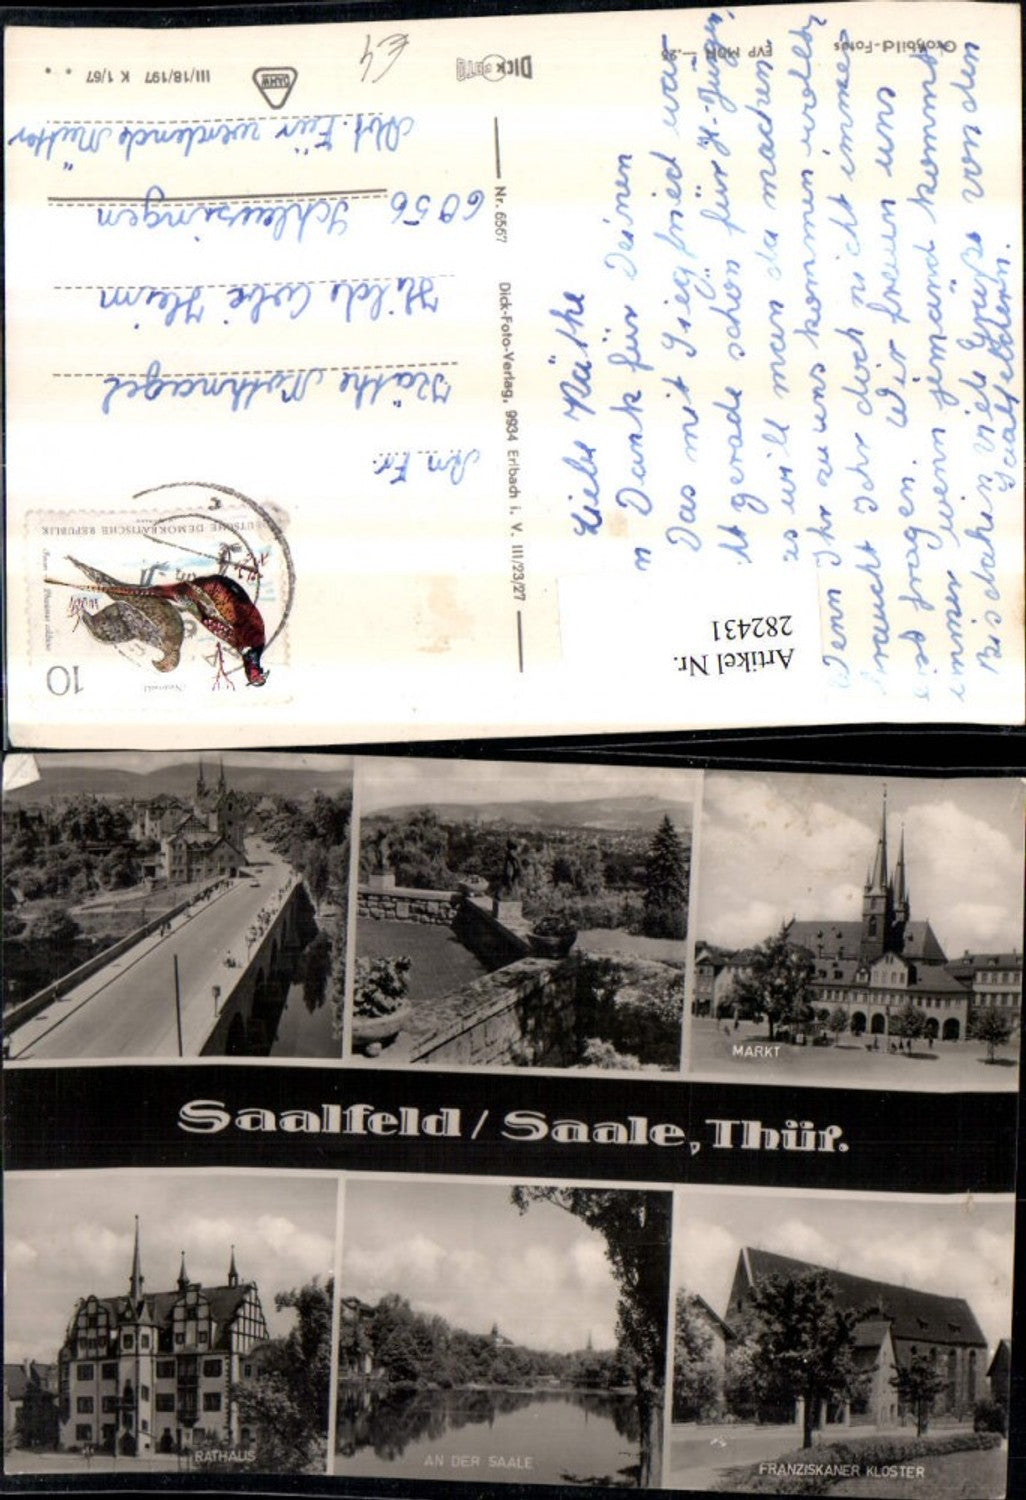 Großbild-Fotos
EVP MDN —.25
DICK FOTO
DAHW
III/18/197 K 1/67
€4
Liebe Käthe
Dank für Deinen
Das mit Siegfried war
gerade schon für H.-Jürgen
so will man da machen
Denn Ihr zu uns kommen wollt
braucht Ihr doch nicht immer
fragen. Wir freuen uns
immer wenn jemand kommt
Bis dahin viele Grüße von uns
Saalfeldern.
Artikel Nr.
282431
Nr. 6567
Dick-Foto-Verlag, 9934 Erlbach i. V. III/23/27
DEUTSCHE DEMOKRATISCHE REPUBLIK
10
An Fr.
Käthe Nothnagel
Hilde Cobe Heim
6056 Schleusingen
Abt. Für werdende Mütter
MARKT
Saalfeld / Saale, Thür.
RATHAUS
AN DER SAALE
FRANZISKANER KLOSTER